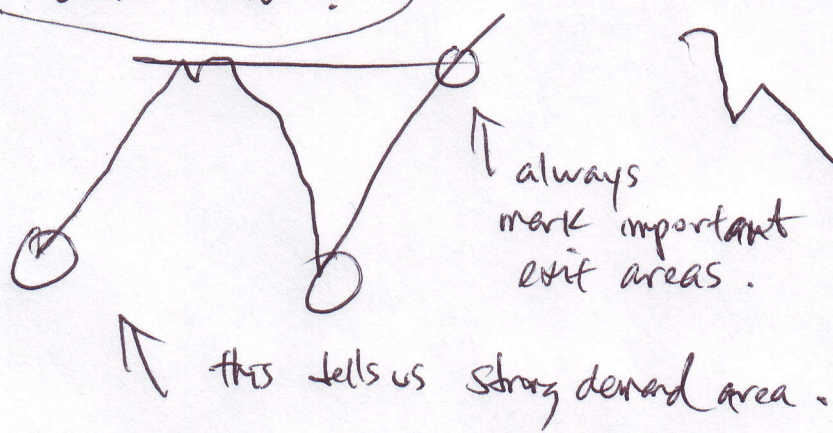 always
mark important
exit areas.
this tells us strong demand area.